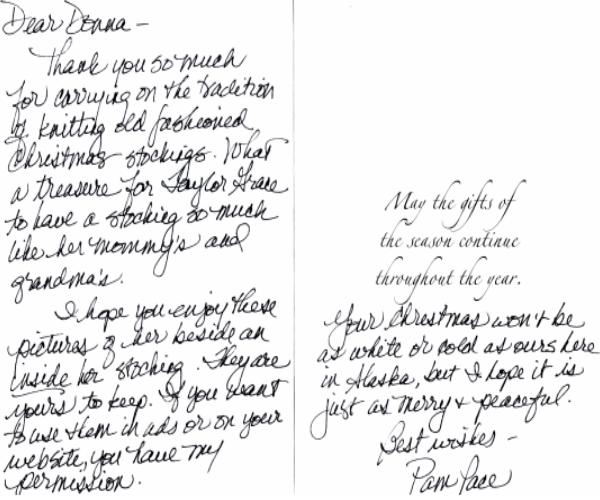 Dear Donna –
Thank you so much
for carrying on the tradition
of knitting old fashioned
Christmas stockings. What
a treasure for Taylor Grace
to have a stocking so much
like her mommy's and
grandma's.
I hope you enjoy these
pictures of her beside an
inside her stocking. They are
yours to keep. If you want
to use them in ads or on your
website, you have my
permission.
May the gifts of
the season continue
throughout the year.
Your Christmas won't be
as white or cold as ours here
in Alaska, but I hope it is
just as merry + peaceful.
Best wishes –
Pam Pace